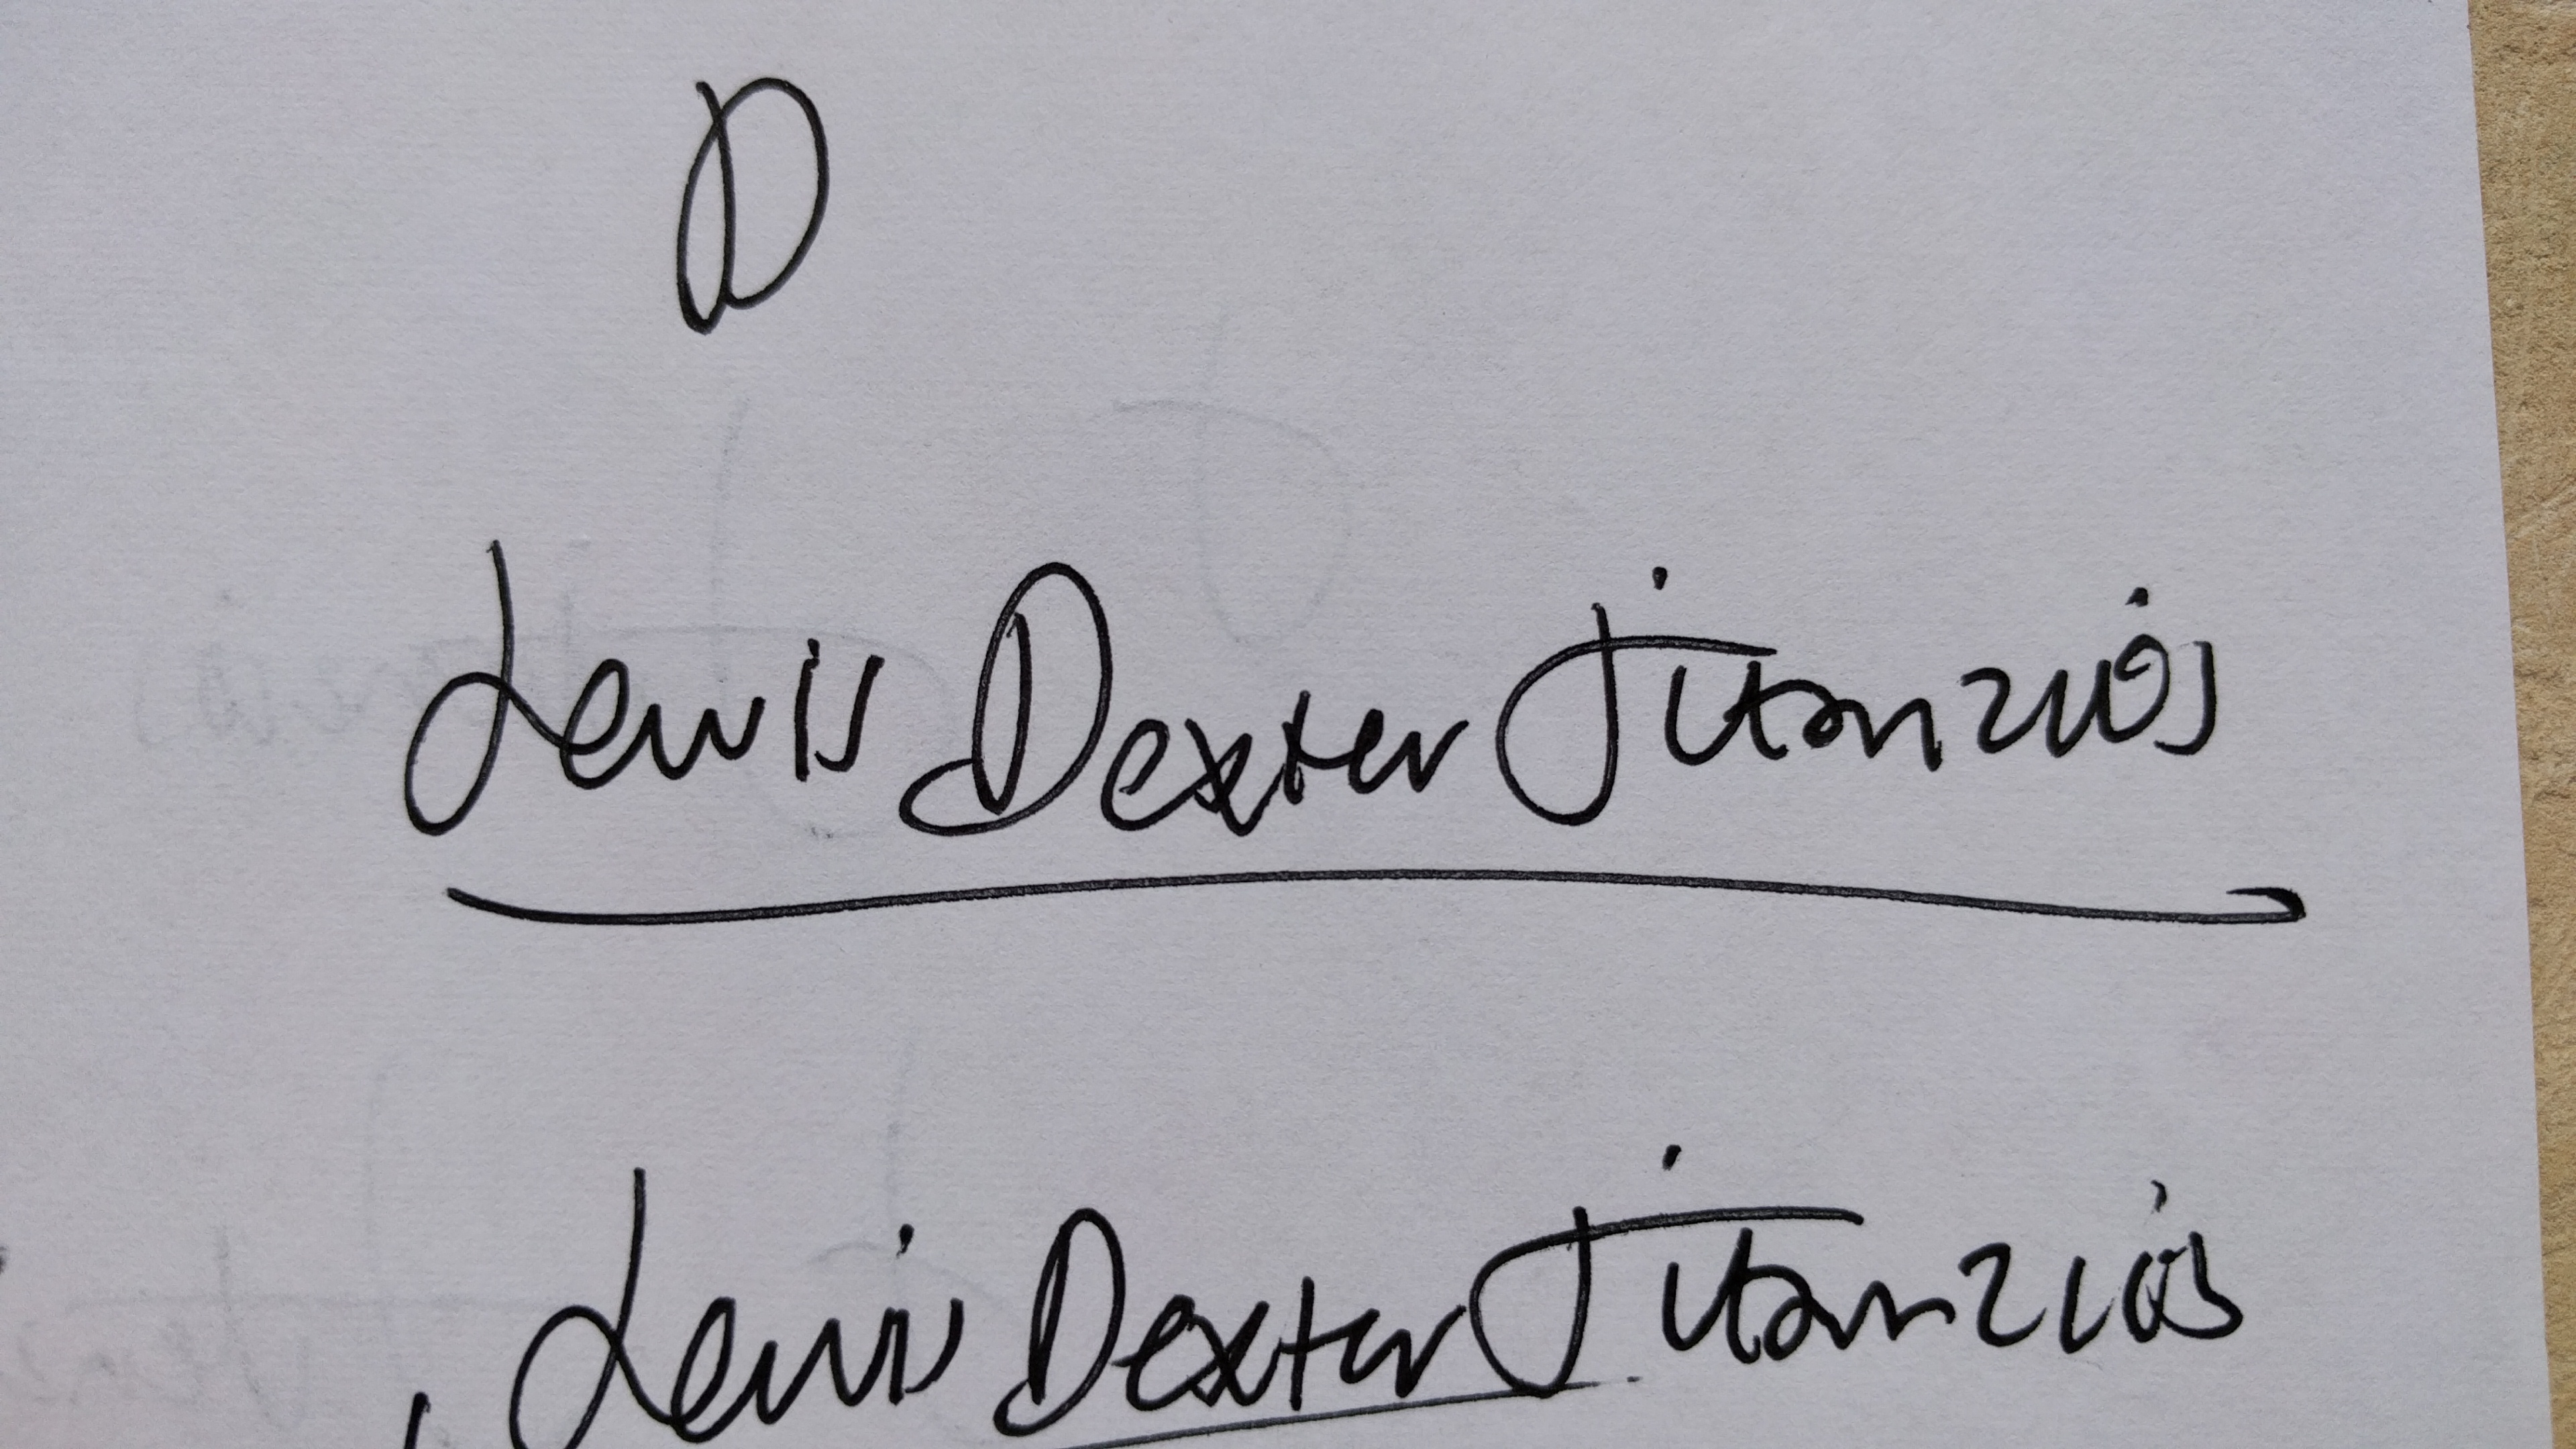 D
Lewis Dexter Titanzios
Lewis Dexter Titanzios